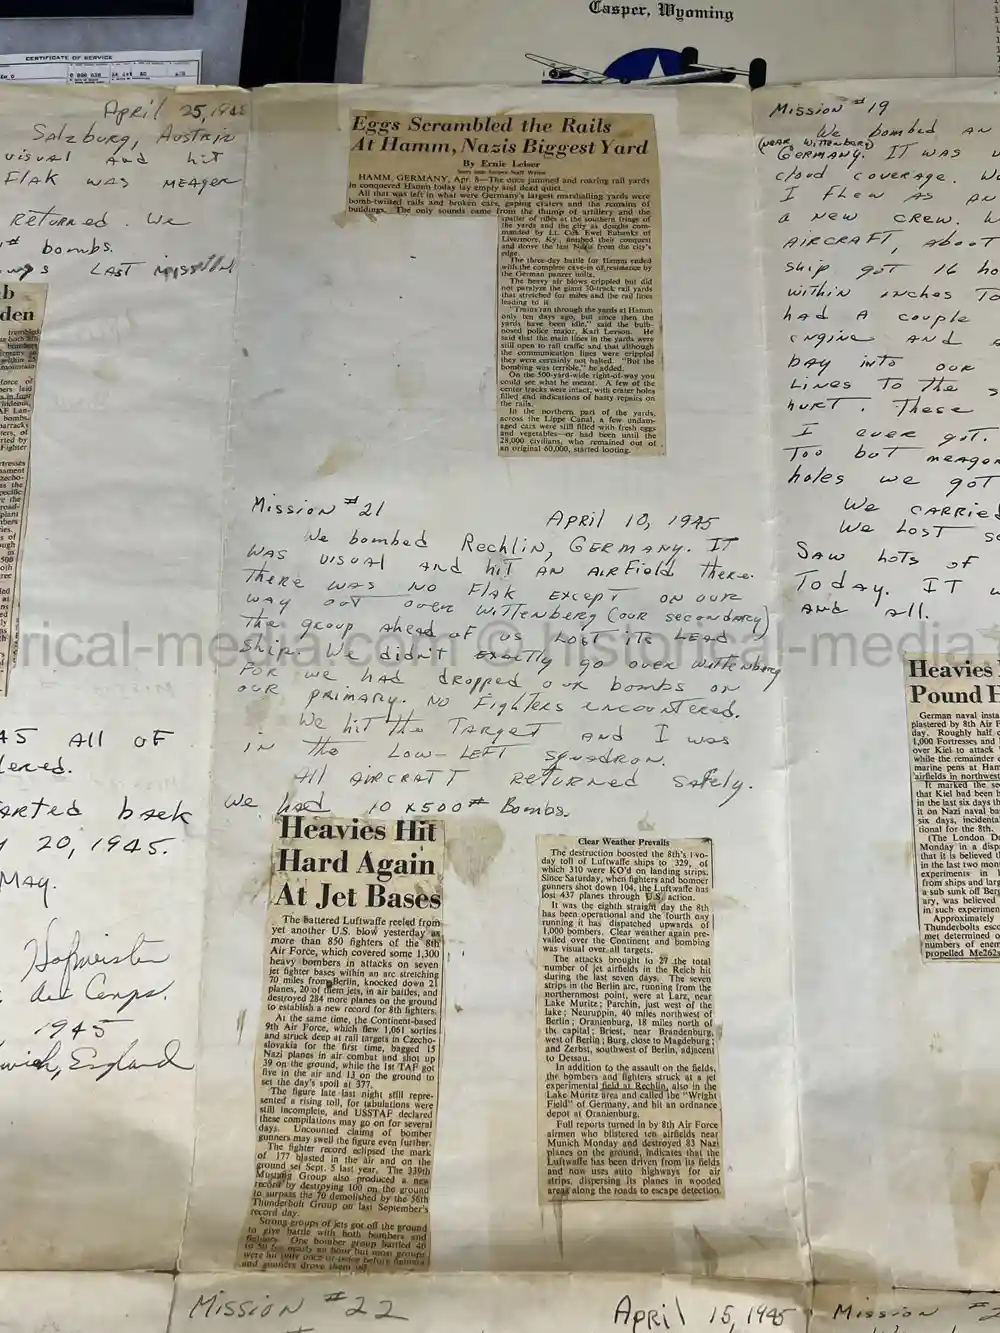 Casper, Wyoming
CERTIFICATE OF SERVICE
April 25, 1945
Salzburg, Austria
visual and hit
Flak was meager
returned. We
# bombs.
last mission
b
den
45 all of
arted back
20, 1945.
May.
Hofmeister
Air Corps.
1945
England
Eggs Scrambled the Rails
At Hamm, Nazis Biggest Yard
By Ernie Leiser
Stars and Stripes Staff Writer
HAMM, GERMANY, Apr. 8—The once jammed and roaring rail yards
in conquered Hamm today lay empty and dead quiet.
All that was left in what were Germany's largest marshalling yards were
bomb-twisted rails and broken cars, gaping craters and the remains of
buildings. The only sounds came from the thump of artillery and the
spatter of rifles at the southern fringe of
the yards and the city as doughs com-
manded by Lt. Col. Ewel Eubanks of
Livermore, Ky., finished their conquest
and drove the last Nazis from the city's
edge.
The three-day battle for Hamm ended
with the complete cave-in of resistance by
the German panzer units.
The heavy air blows crippled but did
not paralyze the giant 30-track rail yards
that stretched for miles and the rail lines
leading to it.
"Trains ran through the yards at Hamm
only ten days ago, but since then the
yards have been idle," said the bulb-
nosed police major, Karl He
said that the main lines in the yards were
still open to rail traffic and that although
the communication lines were crippled
they were certainly not halted. "But the
bombing was terrible," he added.
On the 500-yard-wide right-of-way you
could see what he meant. A few of the
center tracks were intact, with crater holes
filled and indications of hasty repairs on
the rails.
In the northern part of the yards,
across the Lippe Canal, a few undam-
aged cars were still filled with fresh eggs
and vegetables—or had been until the
28,000 civilians, who remained out of
an original 60,000, started looting.
Mission #21
April 10, 1945
We bombed Rechlin, Germany. It
was visual and hit an airfield there.
There was no flak except on our
way out over Wittenberg (our secondary)
The group ahead of us lost its lead
ship. We didn't exactly go over Wittenberg
for we had dropped our bombs on
our primary. No fighters encountered.
We hit the target and I was
in the Low-Left squadron.
All aircraft returned safely.
We had 10 x 500# Bombs.
Heavies Hit
Hard Again
At Jet Bases
The battered Luftwaffe reeled from
yet another U.S. blow yesterday as
more than 850 fighters of the 8th
Air Force, which covered some 1,300
heavy bombers in attacks on seven
jet fighter bases within an arc stretching
70 miles from Berlin, knocked down 21
planes, 20 of them jets, in air battles, and
destroyed 284 more planes on the ground
to establish a new record for 8th fighters.
At the same time, the Continent-based
9th Air Force, which flew 1,061 sorties
and struck deep at rail targets in Czecho-
slovakia for the first time, bagged 15
Nazi planes in air combat and shot up
39 on the ground, while the 1st TAF got
five in the air and 13 on the ground to
set the day's spoil at 377.
The figure late last night still repre-
sented a rising toll, for tabulations were
still incomplete, and USSTAF declared
these compilations may go on for several
days. Uncounted claims of bomber
gunners may swell the figure even further.
The fighter record eclipsed the mark
of 177 blasted in the air and on the
ground set Sept. 5 last year. The 339th
Mustang Group also produced a new
record by destroying 100 on the ground
to surpass the 70 demolished by the 56th
Thunderbolt Group on last September's
record day.
Strong groups of jets got off the ground
to give battle with both bombers and
fighters. One bomber group battled 40
to 50 for nearly an hour but most groups
were hit just once or twice before fighters
and gunners drove them off.
Clear Weather Prevails
The destruction boosted the 8th's two-
day toll of Luftwaffe ships to 329, of
which 310 were KO'd on landing strips.
Since Saturday, when fighters and bomber
gunners shot down 104, the Luftwaffe has
lost 437 planes through U.S. action.
It was the eighth straight day the 8th
has been operational and the fourth day
running it has dispatched upwards of
1,000 bombers. Clear weather again pre-
vailed over the Continent and bombing
was visual over all targets.
The attacks brought to 27 the total
number of jet airfields in the Reich hit
during the last seven days. The seven
strips in the Berlin arc, running from the
northernmost point, were at Larz, near
Lake Muritz; Parchin, just west of the
lake; Neuruppin, 40 miles northwest of
Berlin; Oranienburg, 18 miles north of
the capital; Briest, near Brandenburg,
west of Berlin; Burg, close to Magdeburg;
and Zerbst, southwest of Berlin, adjacent
to Dessau.
In addition to the assault on the fields,
the bombers and fighters struck at a jet
experimental field at Rechlin, also in the
Lake Muritz area and called the "Wright
Field" of Germany, and hit an ordnance
depot at Oranienburg.
Full reports turned in by 8th Air Force
airmen who blistered ten airfields near
Munich Monday and destroyed 83 Nazi
planes on the ground, indicates that the
Luftwaffe has been driven from its fields
and now uses auto highways for air
strips, dispersing its planes in wooded
areas along the roads to escape detection.
Mission #22
April 15, 1945
Mission #19
We bombed an
(near Wittenberg)
Germany. It was
cloud coverage.
I flew as an
a new crew.
aircraft, about
ship got 16 ho
within inches to
had a couple
engine and
bay into our
lines to the
hurt. These
I ever got.
too but meager
holes we got
We carried
We lost
Saw lots of
today. It w
and all.
Heavies
Pound
German naval insta
plastered by 8th Air F
day. Roughly half
1,000 Fortresses and
over Kiel to attack
while the remainder
marine pens at Ham
airfields in northwest
It marked the se
that Kiel had been h
in the last six days th
it on Nazi naval ba
six days, incidenta
tional for the 8th.
(The London D
Monday in a disp
that it is believed t
in the last two mon
experiments in
from ships and larg
a sub sunk off Ber
ary, was believed
in such experimen
Approximately
Thunderbolts esco
met determined o
numbers of enem
propelled Me262s
Mission #2
rical-media.com © historical-media